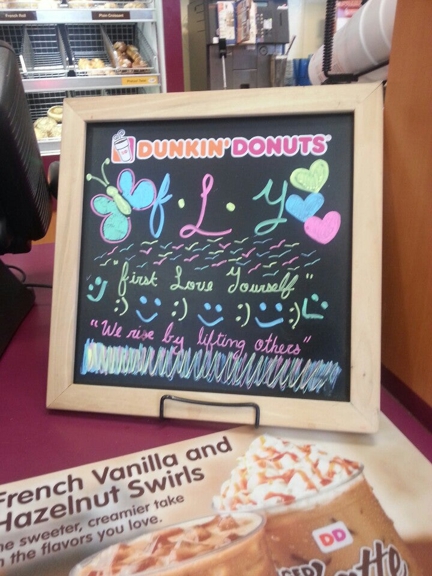 French Roll
Plain Croissant
DUNKIN' DONUTS
f. L. y
"first Love Yourself"
:) :) :) :)
"We rise by lifting others"
French Vanilla and
Hazelnut Swirls
he sweeter, creamier take
n the flavors you love.
DD